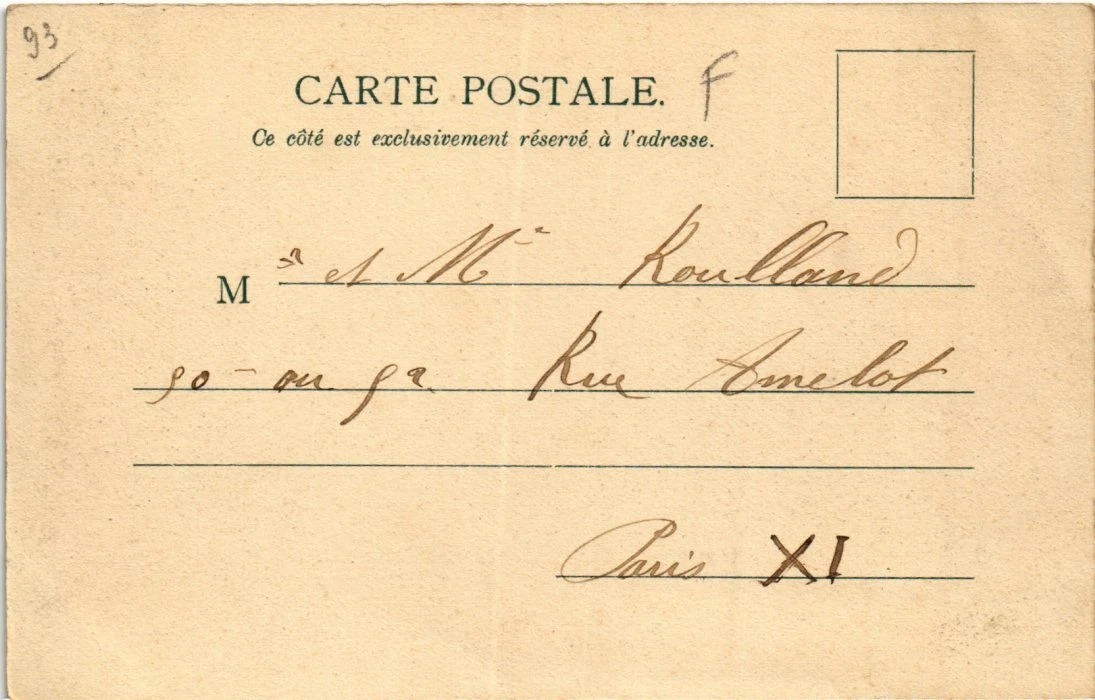 93
CARTE POSTALE. F
Ce côté est exclusivement réservé à l'adresse.
M et Mme Roulland
90 ou 92 Rue Amelot
Paris XI